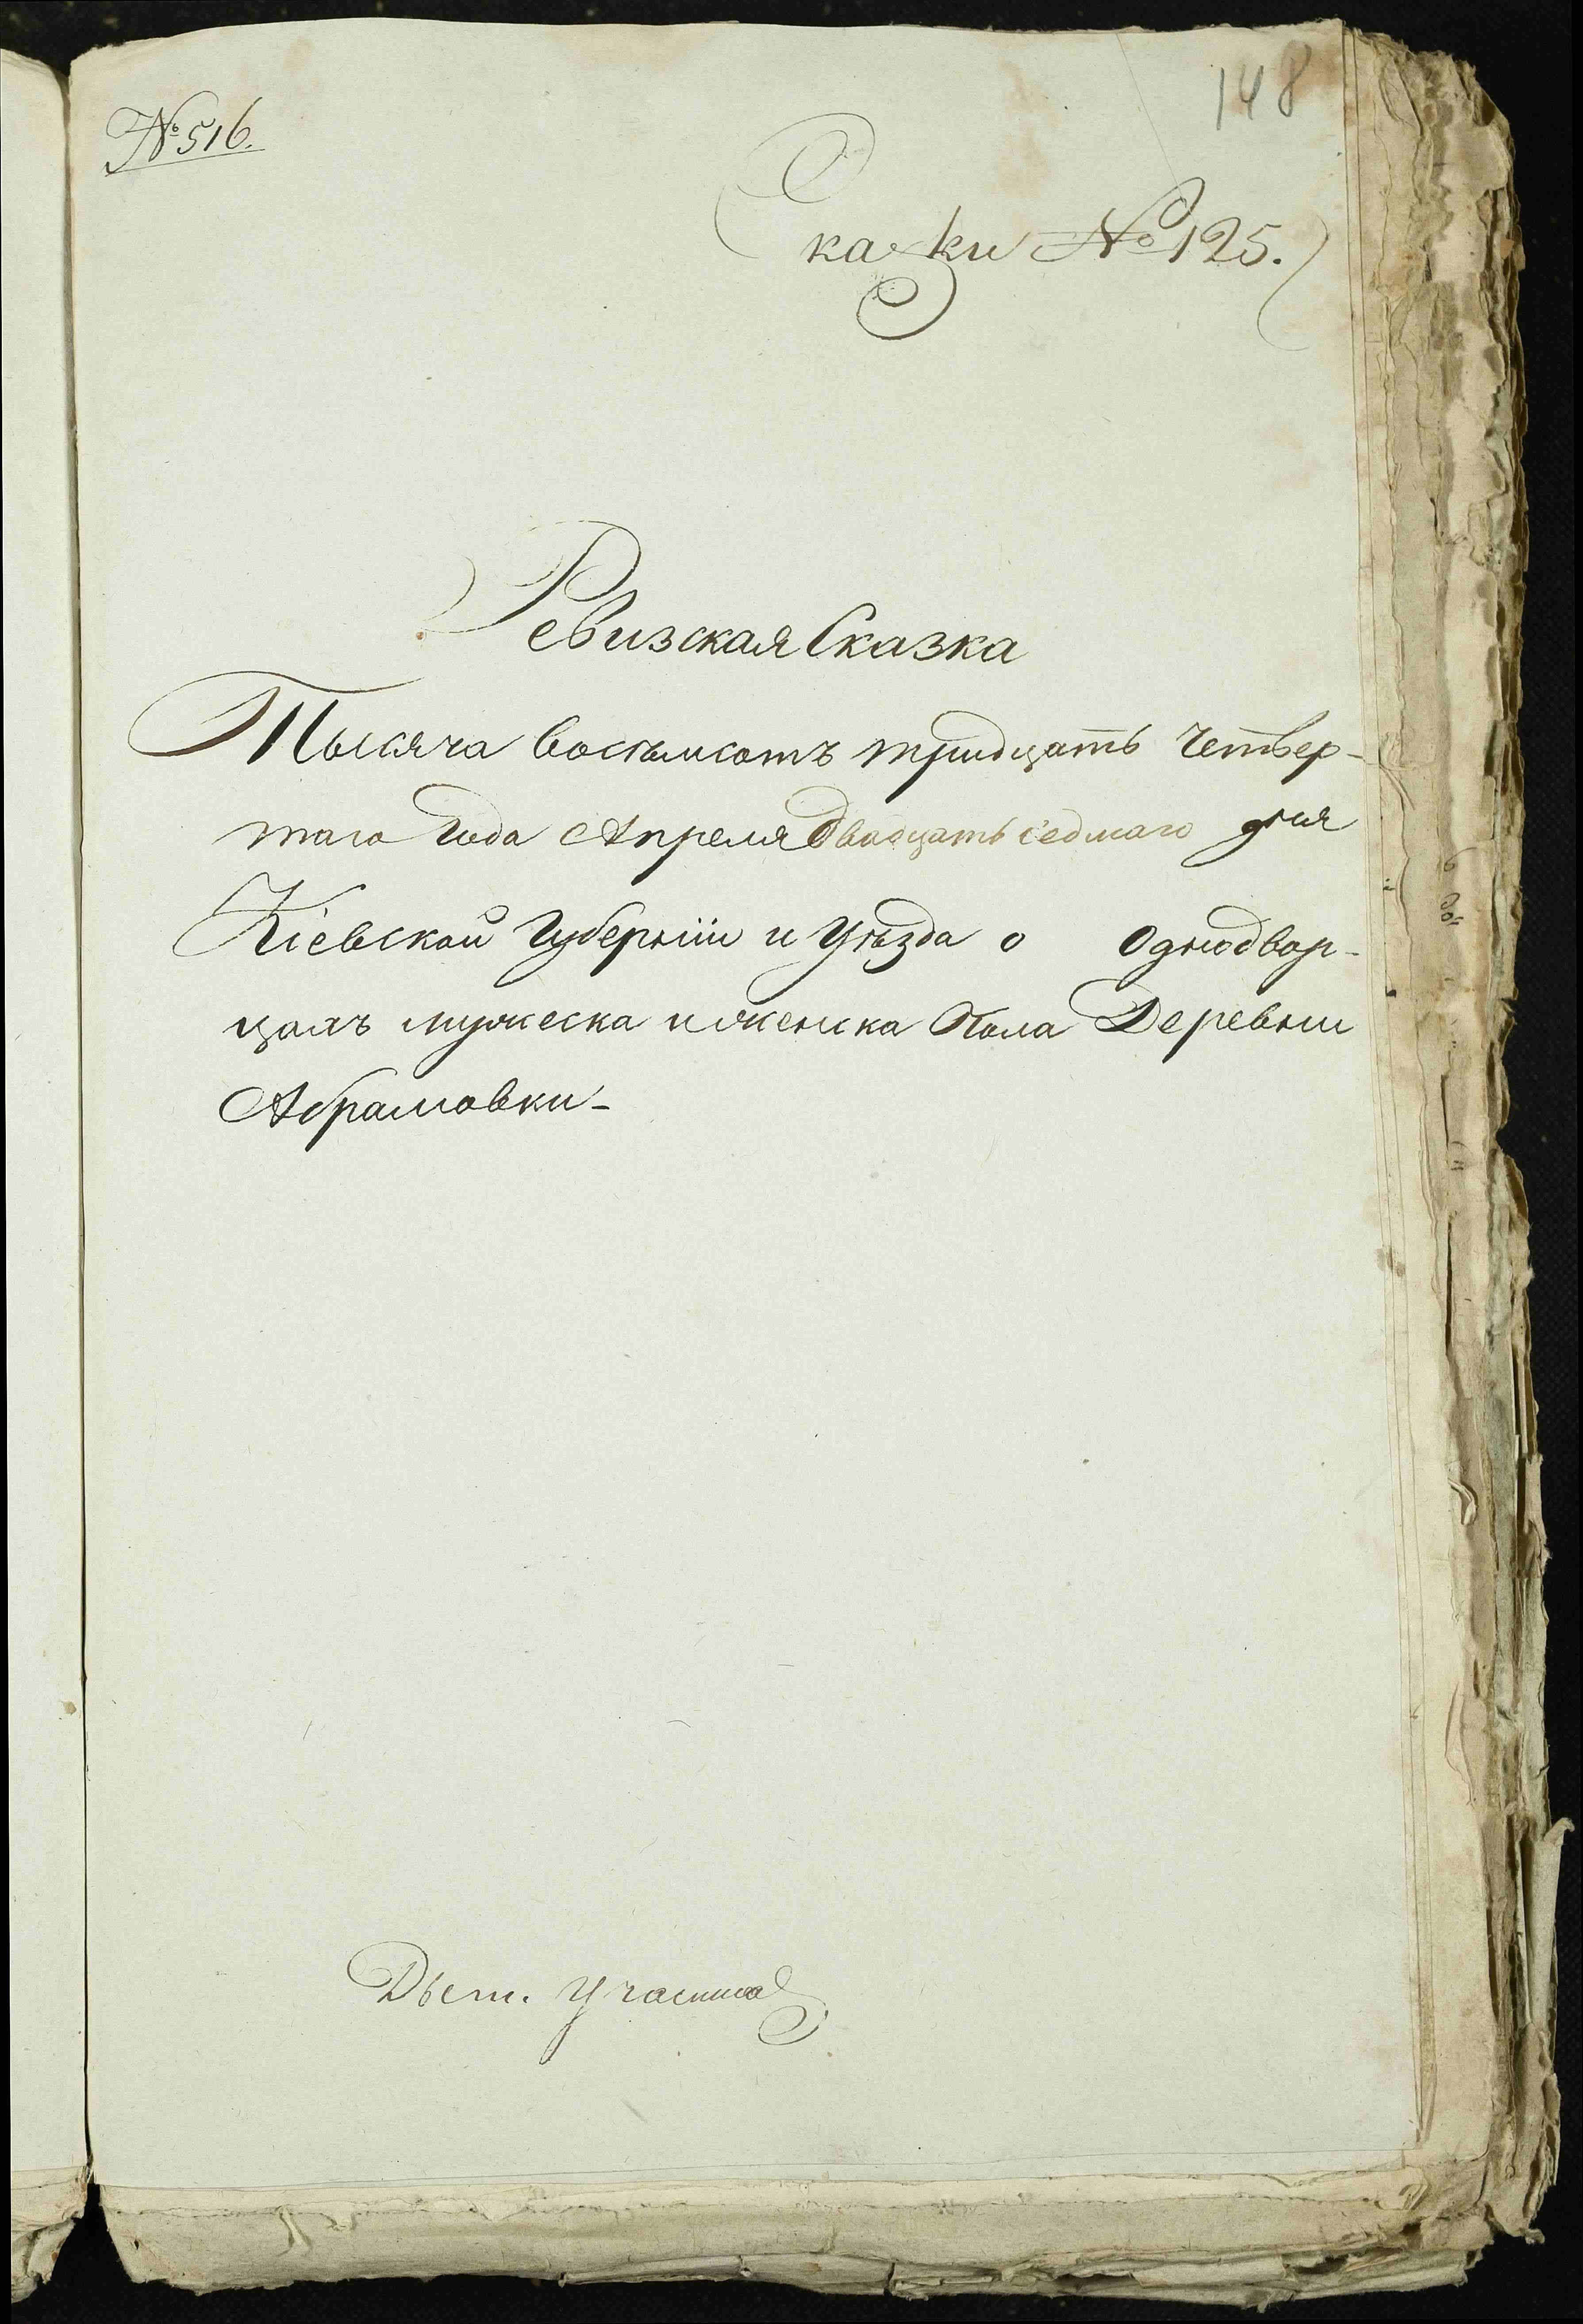 № 516.
148
Сказки № 125.
Ревизская Сказка
Тысяча восъмсотъ тридцать четвер-
таго года Апреля двадцать седмаго дня
Кіевской Губерніи и Уѣзда о Однодвор-
цахъ мужеска и женска Пола Деревни
Абрамовки-